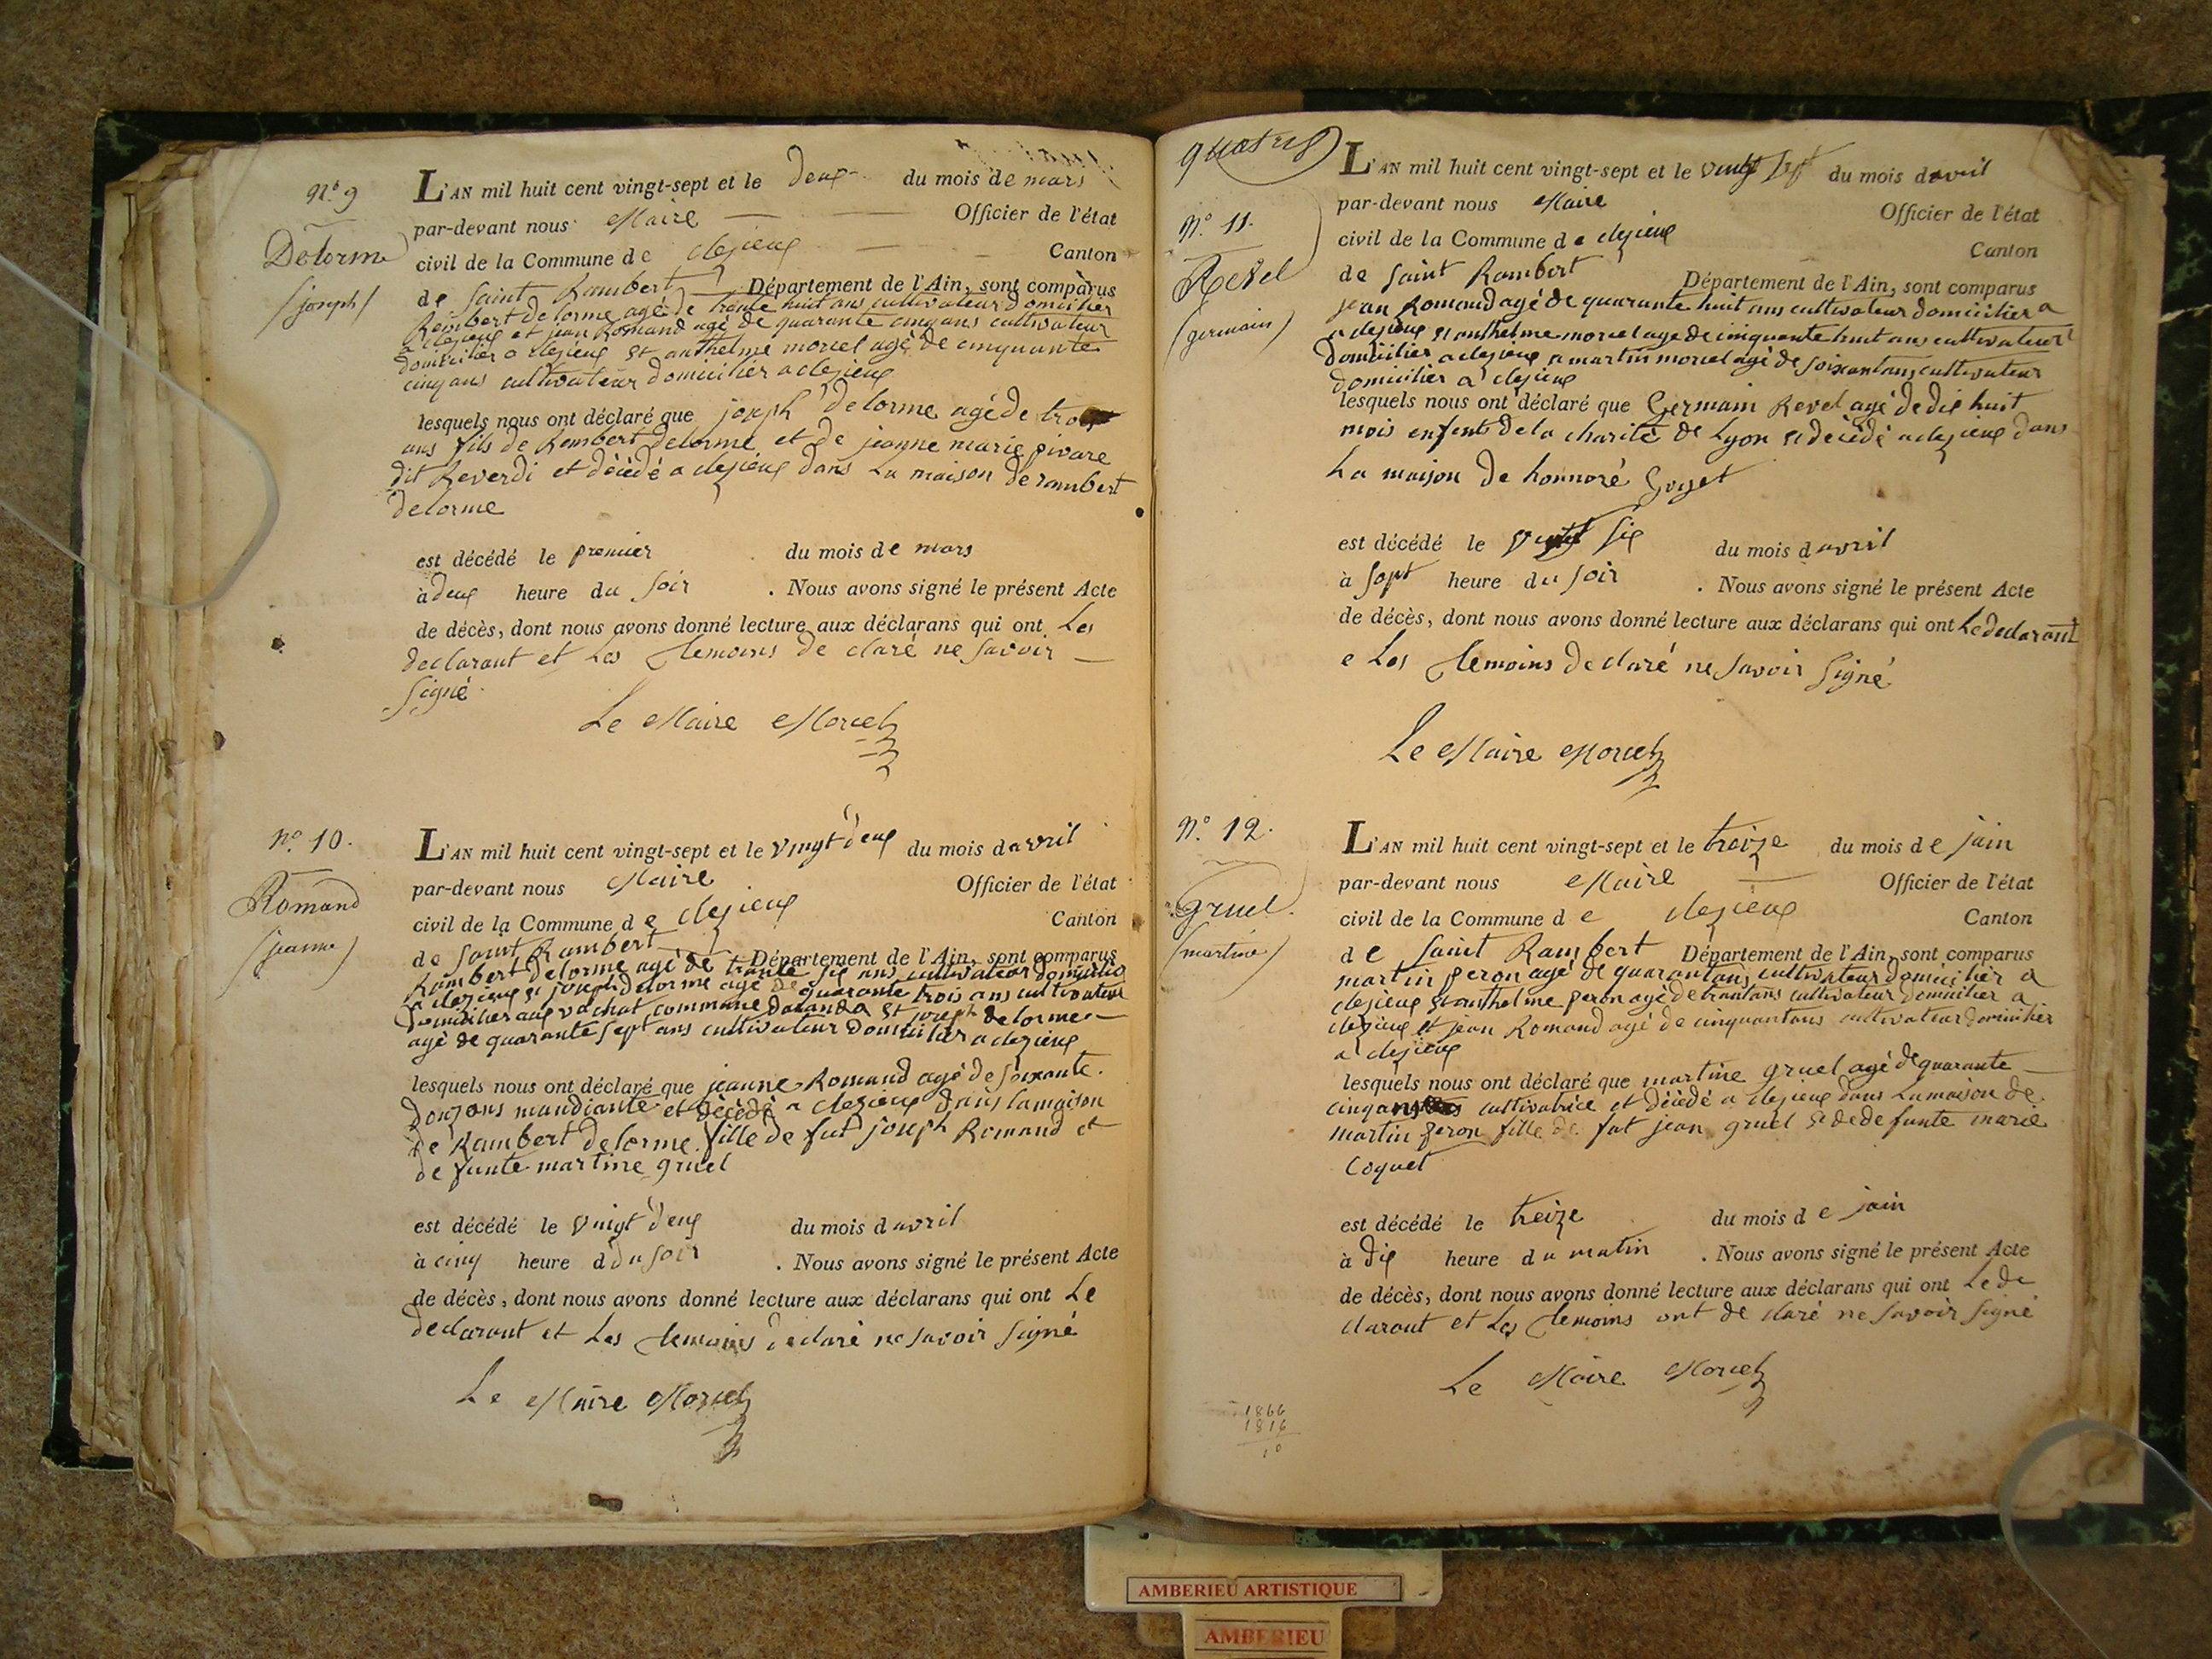 N.° 9
Delorme
(joseph)
L'AN mil huit cent vingt-sept et le deux du mois de mars
par-devant nous Maire Officier de l'état
civil de la Commune de clezieux Canton
de Saint Rambert Département de l'Ain, sont comparus
Rembert delorme agé de trente huit ans cultivateur domicilier
a clezieux et jean Romand agé de quarante cinq ans cultivateur
domicilier a clezieux et anthelme morcel agé de cinquante
cinq ans cultivateur domicilier a clezieux
lesquels nous ont déclaré que joseph delorme agé de trois
ans fils de Rembert delorme et de jeanne marie pivare
dit Reverdi et décédé a clezieux dans La maison de rambert
delorme
est décédé le premier du mois de mars
à deux heure du soir . Nous avons signé le présent Acte
de décès, dont nous avons donné lecture aux déclarans qui ont Les
declarant et Les temoins de claré ne savoir
signé
Le Maire Morcel
N.° 10.
Romand
(jeanne)
L'AN mil huit cent vingt-sept et le vingt deux du mois davril
par-devant nous Maire Officier de l'état
civil de la Commune de clezieux Canton
de Saint Rambert Département de l'Ain, sont comparus
Rambert delorme agé de trante six ans cultivateur domicilier
a clezieux et joseph delorme agé de quarante trois ans cultivateur
domicilier aux vachat commune daranda et joseph delorme
agé de quarante sept ans cultivateur domicilier a clezieux
lesquels nous ont déclaré que jeanne Romand agé de soixante
douz ans mandiante et décédé a clezieux dans lamaison
de Rambert delorme fille de fut joseph Romand et
de funte martine gruel
est décédé le vingt deux du mois davril
à cinq heure d du soir . Nous avons signé le présent Acte
de décès, dont nous avons donné lecture aux déclarans qui ont Le
declarant et Les temoins declaré ne savoir signé
Le Maire Morcel
quatre
N.° 11.
Revel
(germain)
L'AN mil huit cent vingt-sept et le vingt sept du mois davril
par-devant nous Maire Officier de l'état
civil de la Commune de clezieux Canton
de Saint Rambert Département de l'Ain, sont comparus
jean Romand agé de quarante huit ans cultivateur domicilier a
a clezieux et anthelme morcel age de cinquante huit ans cultivateur
Domicilier a clezieux a martin morcel agé de soixantans cultivateur
domicilier a clezieux
lesquels nous ont déclaré que Germain Revel agé de dix huit
mois enfents dela charité de Lyon et décédé a clezieux dans
La maison de honnoré Goyet
est décédé le vingt six du mois davril
à sept heure du soir . Nous avons signé le présent Acte
de décès, dont nous avons donné lecture aux déclarans qui ont Le declarant
e Les temoins declaré ne savoir signé
Le Maire Morcel
N.° 12.
gruel.
(martine)
L'AN mil huit cent vingt-sept et le treize du mois de juin
par-devant nous Maire Officier de l'état
civil de la Commune de clezieux Canton
de Saint Rambert Département de l'Ain, sont comparus
martin peron agé de quarantans cultivateur domicilier a
clezieux et anthelme peron agé de trantans cultivateur domicilier a
clezieux et jean Romand agé de cinquantans cultivateur domicilier
a clezieux
lesquels nous ont déclaré que martine gruel agé de quarante
cinq ans cultivatrice et décédé a clezieux dans Lamaison de
martin peron fille de fut jean gruel et dedefunte marie
Coquet
est décédé le treize du mois de juin
à dix heure du matin . Nous avons signé le présent Acte
de décès, dont nous avons donné lecture aux déclarans qui ont Le de
clarant et Les temoins ont de claré ne savoir signé
Le Maire Morcel
1866
1816
10
AMBERIEU ARTISTIQUE
AMBERIEU